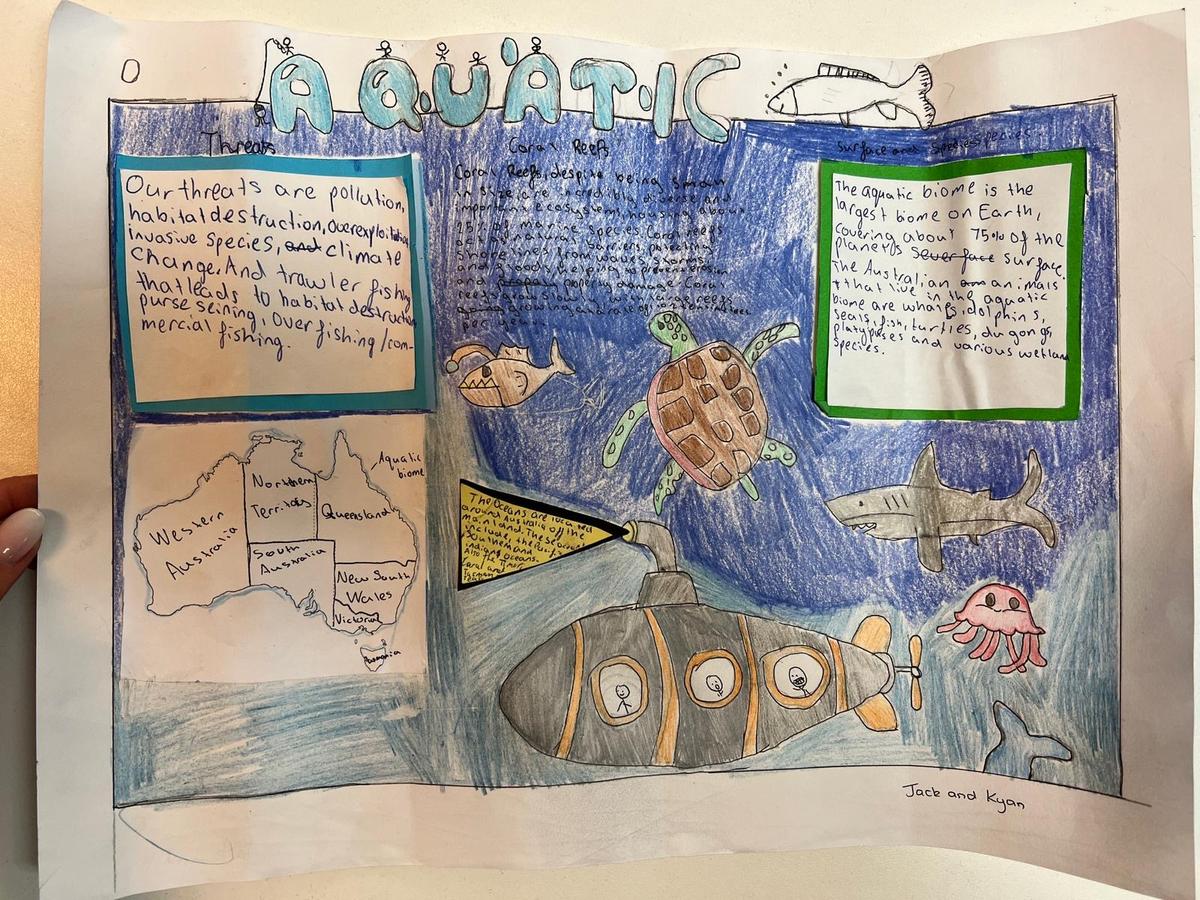 AQUATIC
Threats
Our threats are pollution,
habitat destruction, Overexploitation
invasive species, and climate
change. And trawler fishing
that leads to habitat destruction
purse seining, over fishing /com-
mercial fishing.
Coral Reefs
Coral Reefs, despite being small
in size, are incredibly diverse and
important ecosystem, housing about
25% of marine species. Coral reefs
act as natural barriers, protecting
shorelines from waves, storms
and floods, helping to prevent erosion
and property damage. Coral
reefs grow slowly, with
growing at a rate of
per year.
Surface and species
The aquatic biome is the
largest biome on Earth,
covering about 75% of the
planet's surface.
The Australian animals
that live in the aquatic
biome are whales, dolphins,
seals, fish, turtles, dugongs,
platypuses and various wetland
species.
Aquatic
biome
Western
Australia
Northern
Queensland
South
Australia
New South
Wales
Victoria
Tasmania
The Oceans are located
around Australia off the
mainland. The
include, the Pacific
Southern and
indian oceans.
Also the Timor
Coral and
Tasman
Jack and Kyan